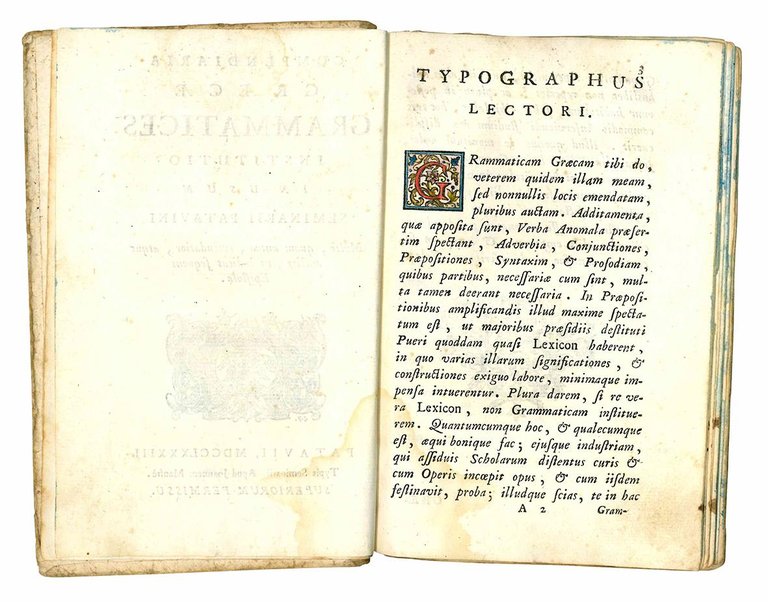 COMPENDIARIA
GRÆCÆ
GRAMMATICES
INSTITUTIO
IN USUM
SEMINARII PATAVINI
PATAVII
SUPERIORUM PERMISSU.
3
TYPOGRAPHUS
LECTORI.
GRammaticam Græcam tibi do,
veterem quidem illam meam,
ſed nonnullis locis emendatam,
pluribus auctam. Additamenta,
quæ appoſita ſunt, Verba Anomala præſer-
tim ſpectant, Adverbia, Conjunctiones,
Præpoſitiones, Syntaxim, & Proſodiam,
quibus partibus, neceſſariæ cum ſint, mul-
ta tamen deerant neceſſaria. In Præpoſi-
tionibus amplificandis illud maxime ſpecta-
tum eſt, ut majoribus præſidiis deſtituti
Pueri quoddam quaſi Lexicon haberent,
in quo varias illarum ſignificationes, &
conſtructiones exiguo labore, minimaque im-
penſa intuerentur. Plura darem, ſi re ve-
ra Lexicon, non Grammaticam inſtitue-
rem. Quantumcumque hoc, & qualecumque
eſt, æqui bonique fac; ejuſque induſtriam,
qui aſſiduis Scholarum diſtentus curis &
cum Operis incœpit opus, & cum iiſdem
feſtinavit, proba; illudque ſcias, te in hac
A 2 Gram-